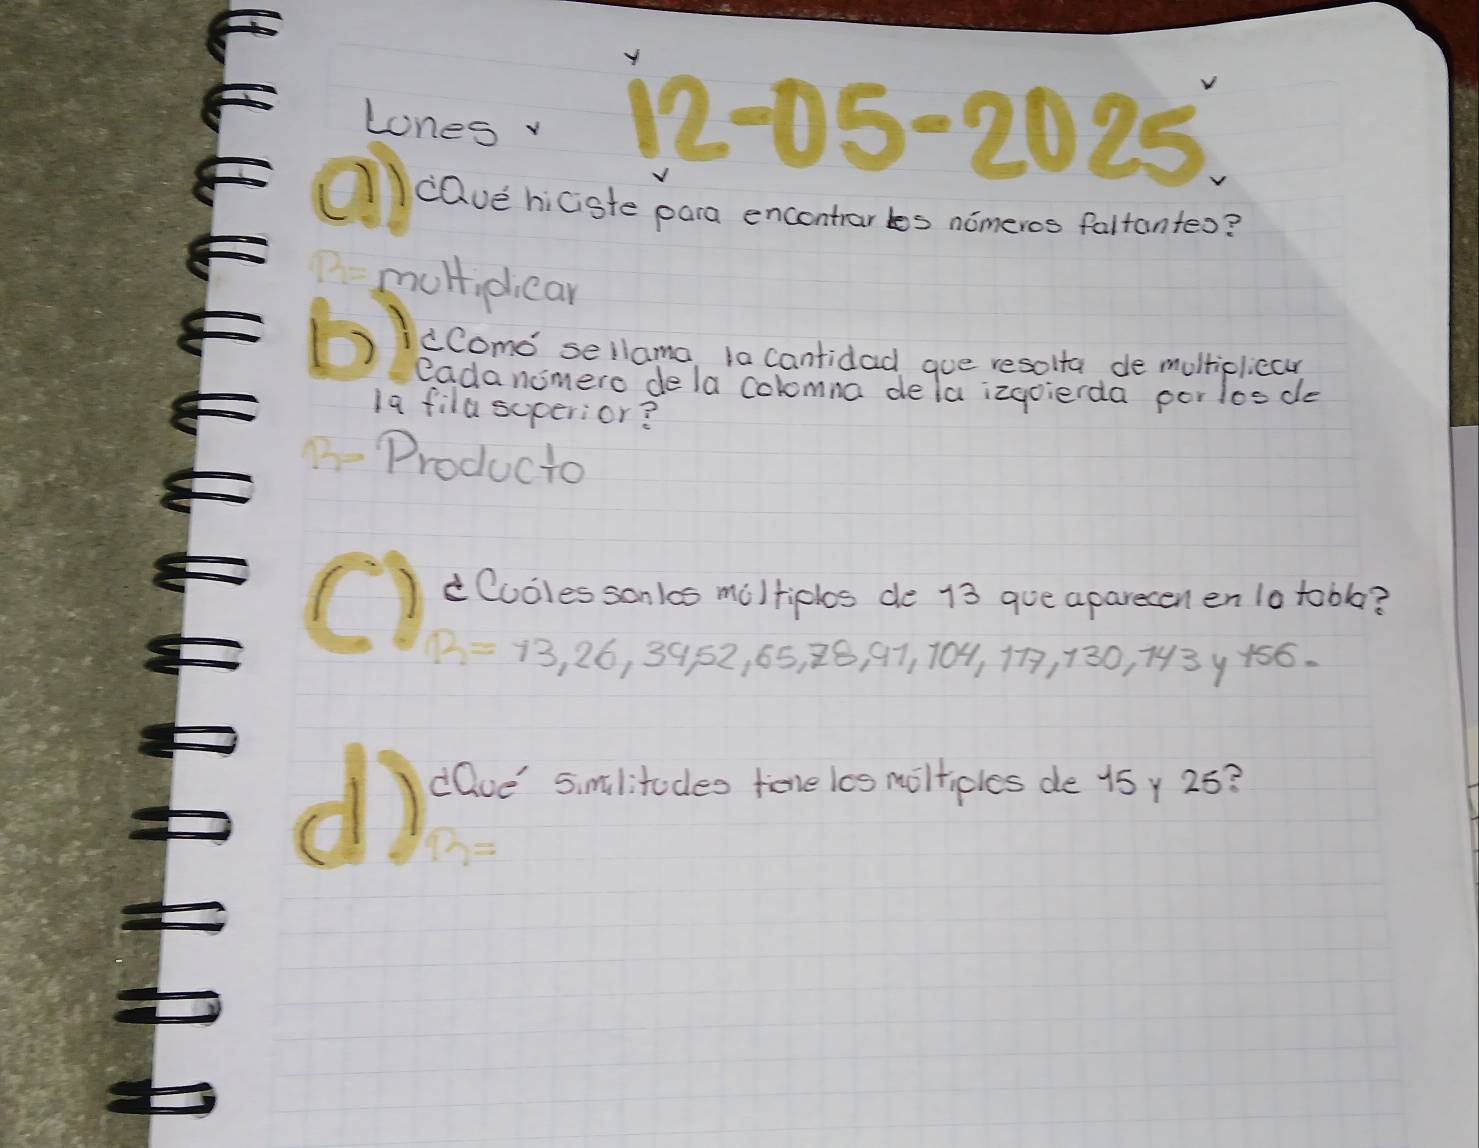 Lunes 12-05-2025
a) ¿Qué hiciste para encontrar los números faltantes?
R= multiplicar
b) ¿Comó sellama la cantidad que resulta de multiplicar
cada número dela columna dela izquierda por los de
la fila superior?
R= Producto
c) ¿Cuáles son los múltiplos de 13 que aparecen en la tabla?
R= 13, 26, 39, 52, 65, 78, 91, 104, 117, 130, 143 y 156.
d) ¿Qué similitudes tiene los múltiplos de 15 y 25?
R=